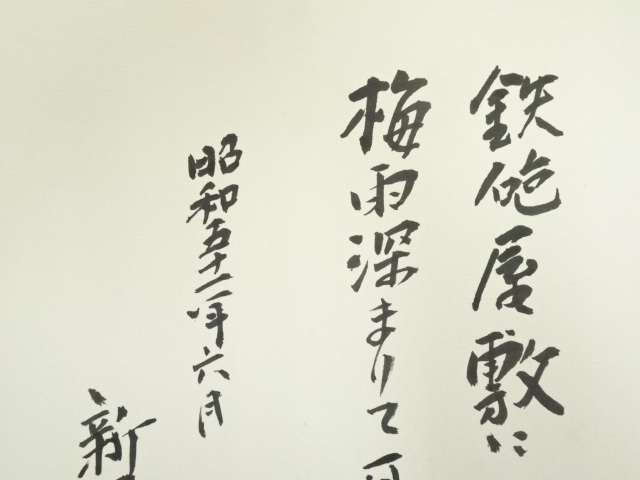 鉄砲屋敷に
梅雨深まりて
昭和五十一年六月
新